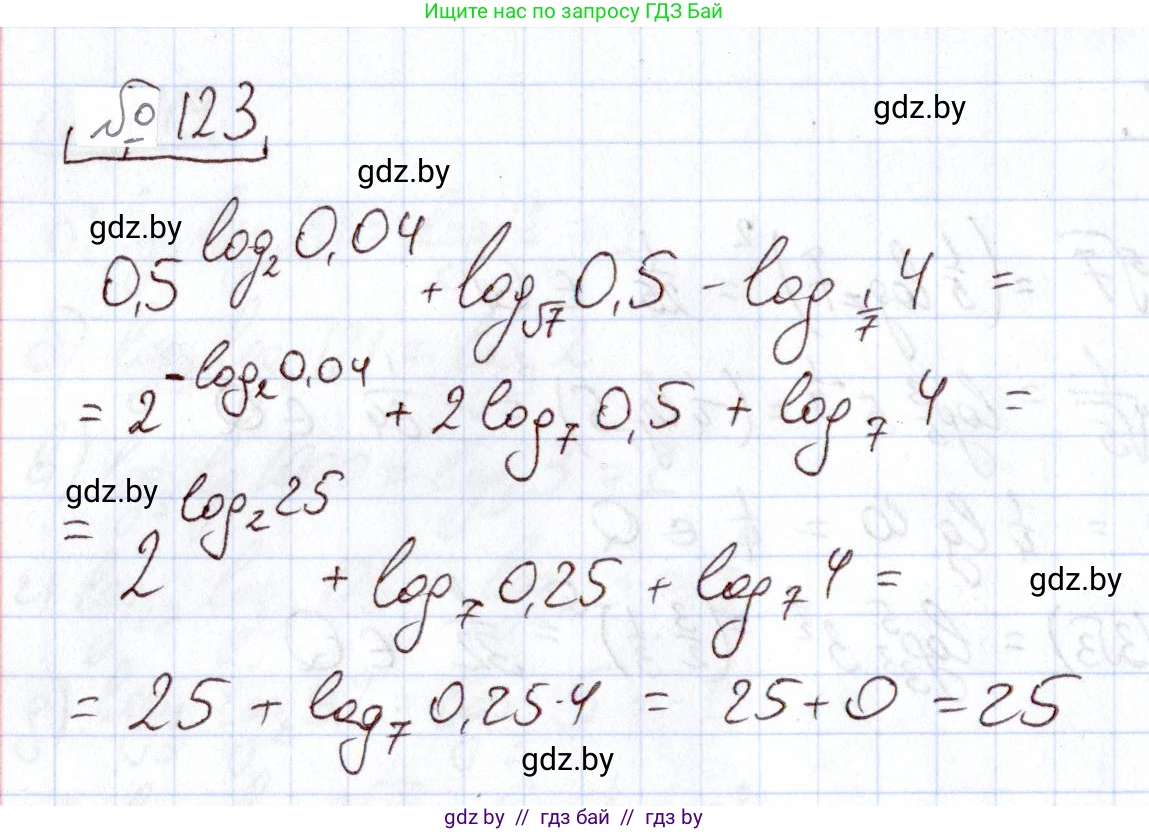 Ищите нас по запросу ГДЗ Бай
№ 123
gdz.by
gdz.by
gdz.by
0,5^{log₂ 0,04} + log_{√7} 0,5 - log_{1/7} 4 =
= 2^{-log₂ 0,04} + 2 log₇ 0,5 + log₇ 4 =
gdz.by
= 2^{log₂ 25} + log₇ 0,25 + log₇ 4 =
gdz.by
= 25 + log₇ 0,25·4 = 25 + 0 = 25
gdz.by
gdz by // гдз бай // гдз by